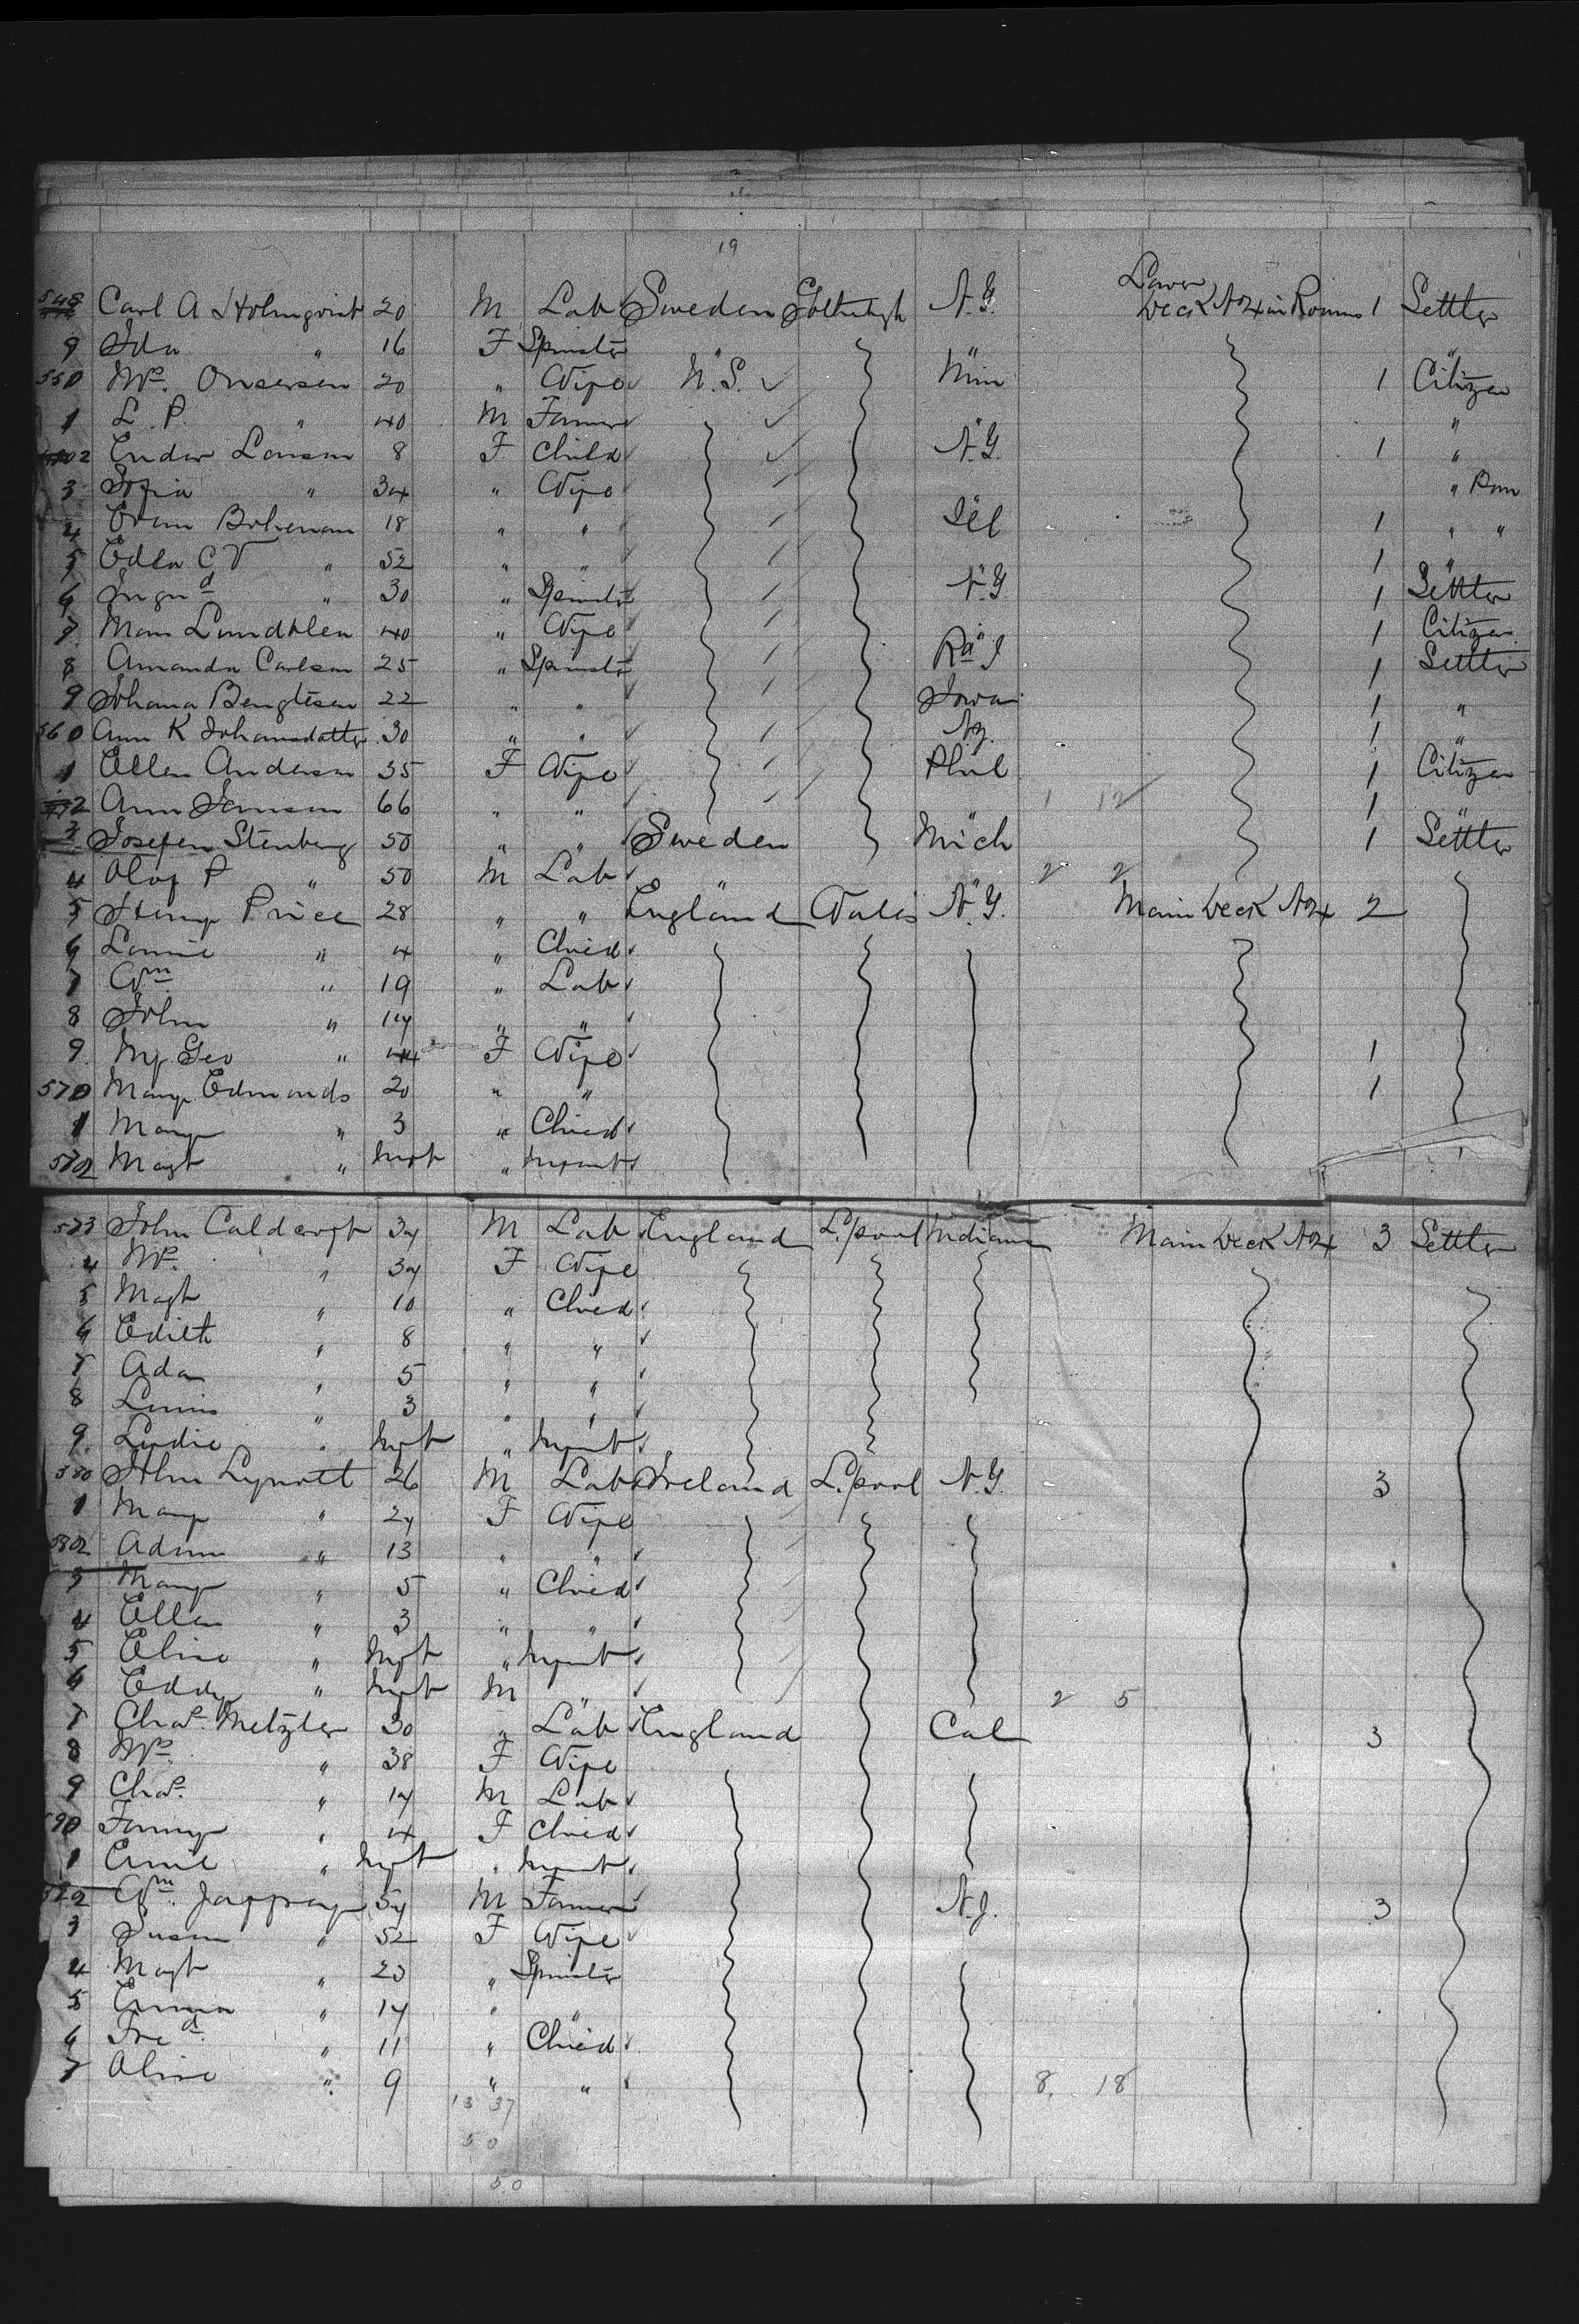 19
548 Carl A Holmqvist 20 M Lab Sweden Gothenbgh N.Y. Lower Deck No 4 in Rooms 1 Settler
9 Ida " 16 F Spinster " "
550 Mrs. 20 " Wife U.S. Min 1 Citizen
1 L. P. " 40 M Farmer " "
2 Larson 8 F Child N.Y. 1 "
3 Sofia " 34 " Wife "
4 18 " " Ill 1 " "
5 Edla C V " 52 " " " 1 "
6 " 30 " Spinster N.Y 1 Settler
7 40 " Wife " 1 Citizen
8 Amanda Carlson 25 " Spinster R I 1 Settler
9 Johana Bengtson 22 " " Iowa 1 "
560 Ann K Johansdatter 30 " " Ny. 1 "
1 Ellen Anderson 35 F Wife Phil 1 Citizen
2 Ann 66 " " " 1 12 1 "
3 Josefen Stenberg 50 " " Sweden Mich 1 Settler
4 Olof P " 50 M Lab " " 2 2
5 Price 28 " " England Wales N.Y. Main Deck No 4 2
6 " 4 " Child
7 Wm " 19 " Lab
8 John " 14 " "
9 " 44 F Wife 1
570 Mary Edmonds 20 " " 1
1 Mary " 3 " Child
572 Magt " Inft " Infant
573 John 34 M Lab England L.pool Indiana Main Deck No 4 3 Settler
4 Mrs. " 34 F Wife
5 Magt " 10 " Child
6 Edith " 8 " "
7 Ada " 5 " "
8 " 3 " "
9 Lydie " Inft " Infant
580 John Lynott 26 M Lab Ireland L.pool N.Y. 3
1 Mary " 24 F Wife
582 " 13 " "
3 Mary " 5 " Child
4 Ellen " 3 " "
5 " Inft " Infant
6 Eddy " Inft M " 2 5
7 Chas. Metzler 30 " Lab England Cal 3
8 Mrs. " 38 F Wife
9 Chas. " 14 M Lab
590 Fanny " 4 F Child
1 " Inft " Infant
592 Wm. 54 M Farmer N.J. 3
3 Susan " 52 F Wife
4 Magt " 23 " Spinster
5 Emma " 14 " "
6 Fred. " 11 " Child
7 " 9 " " 8. 18
13 37
50
50